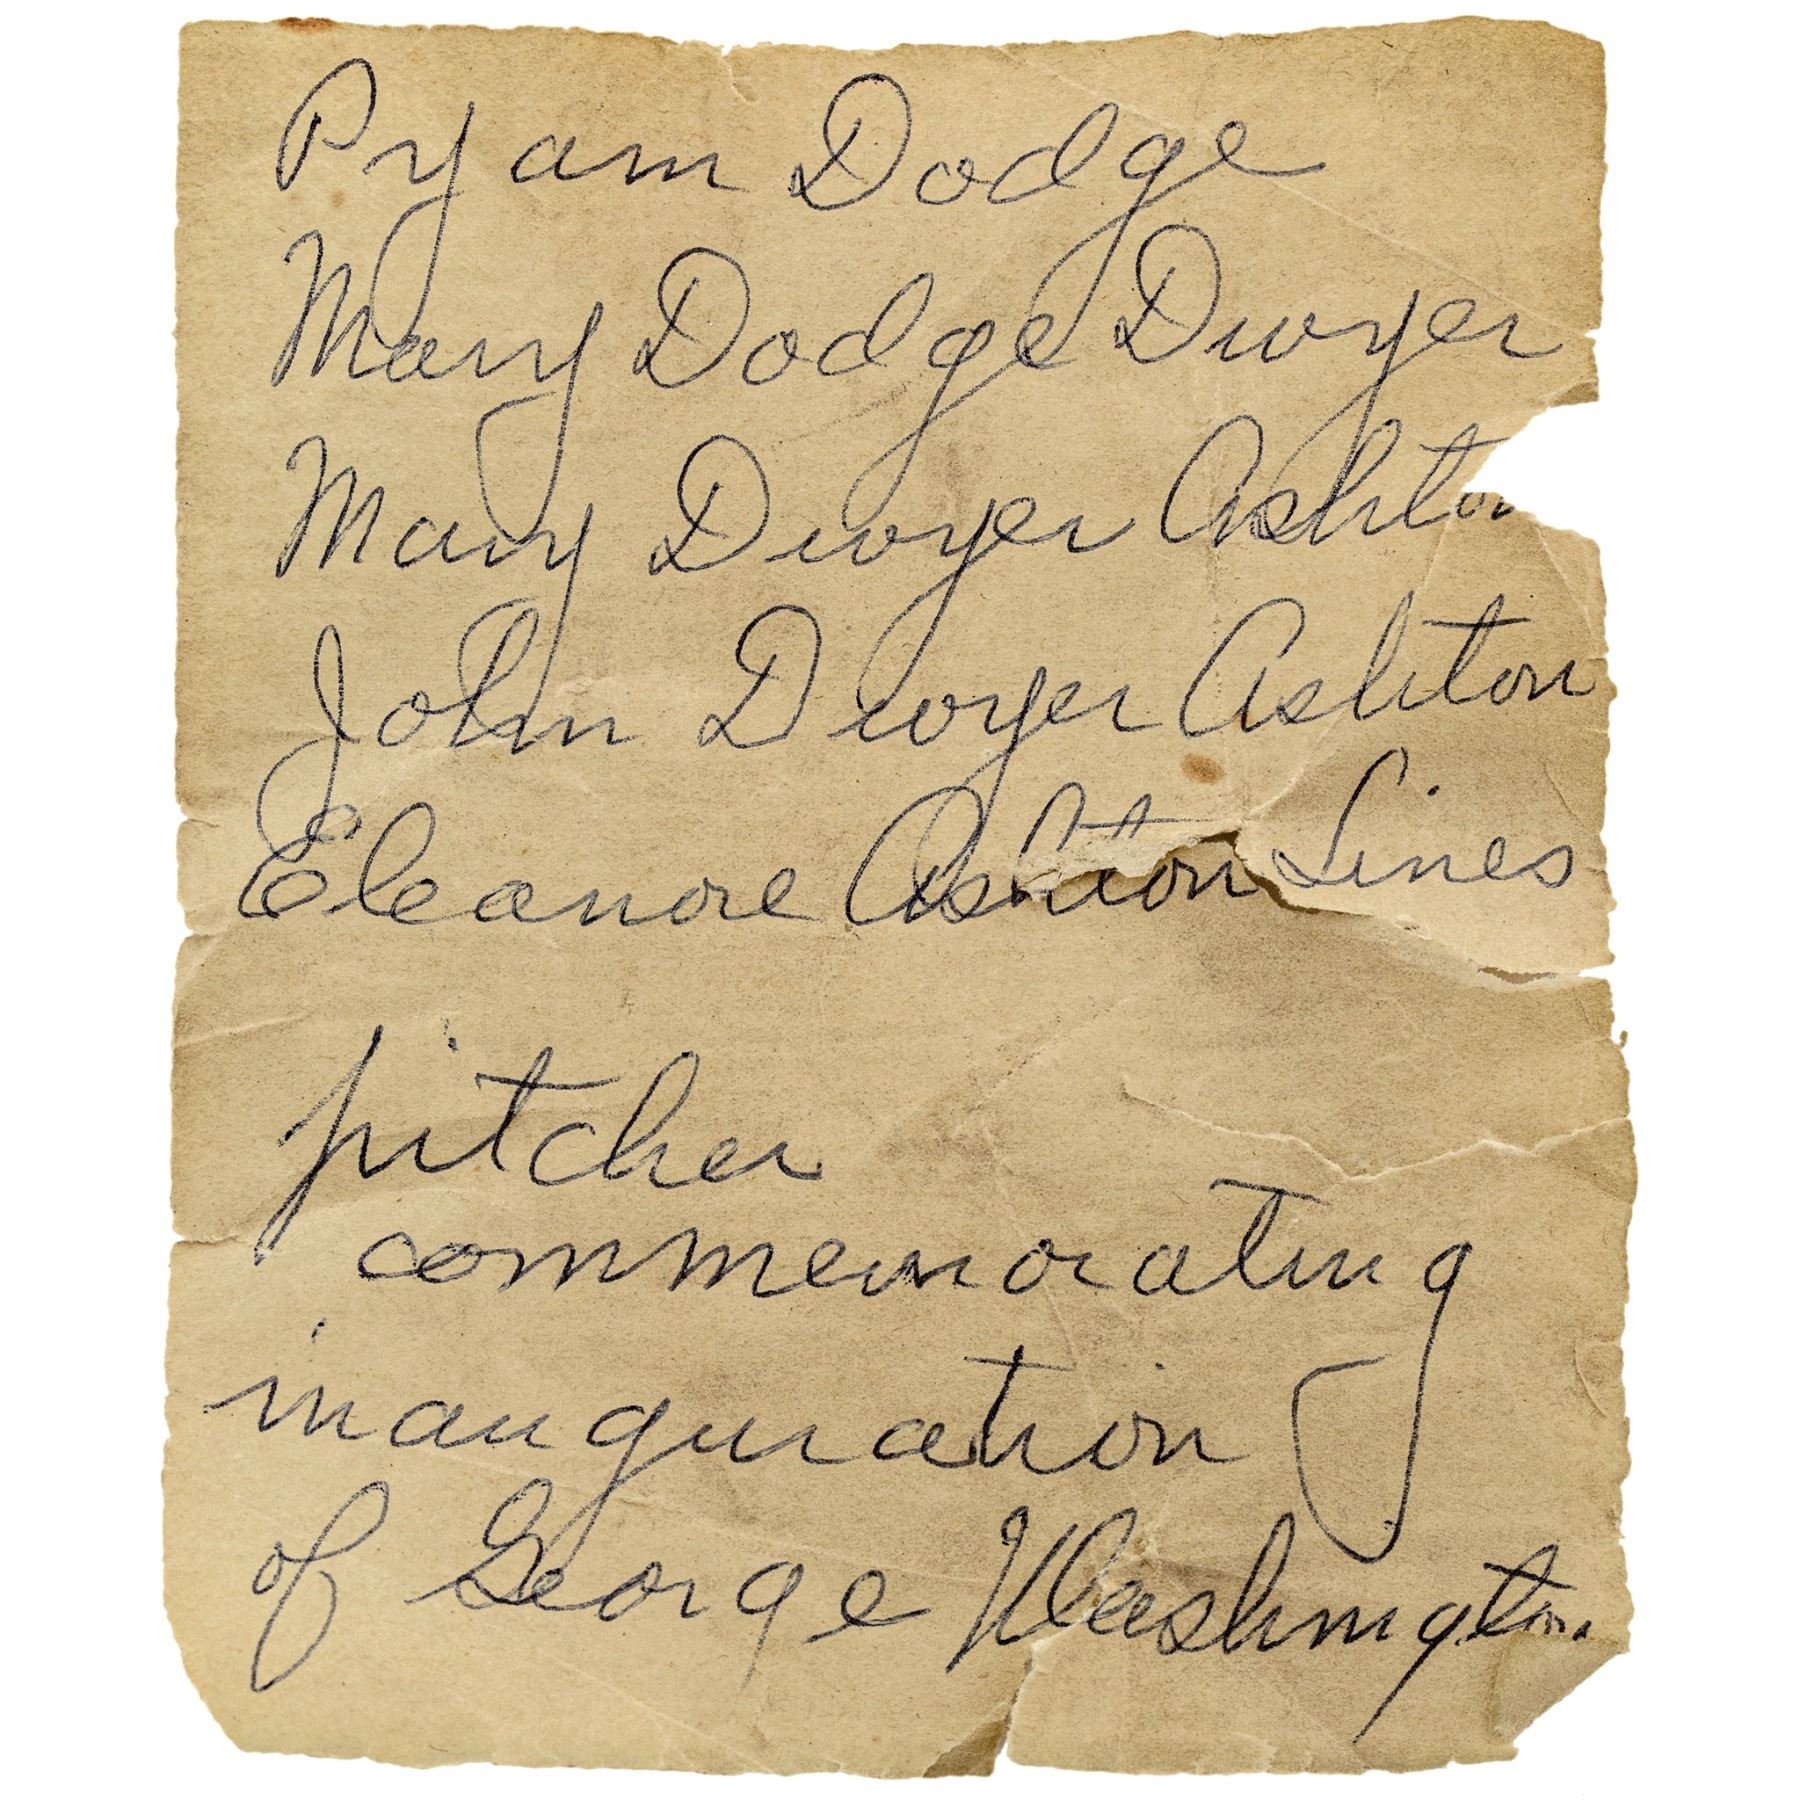 Pyam Dodge
Mary Dodge Dwyer
Mary Dwyer Ashton
John Dwyer Ashton
Eleanore Ashton Lines
pitcher
commemorating
inauguration
of George Washington